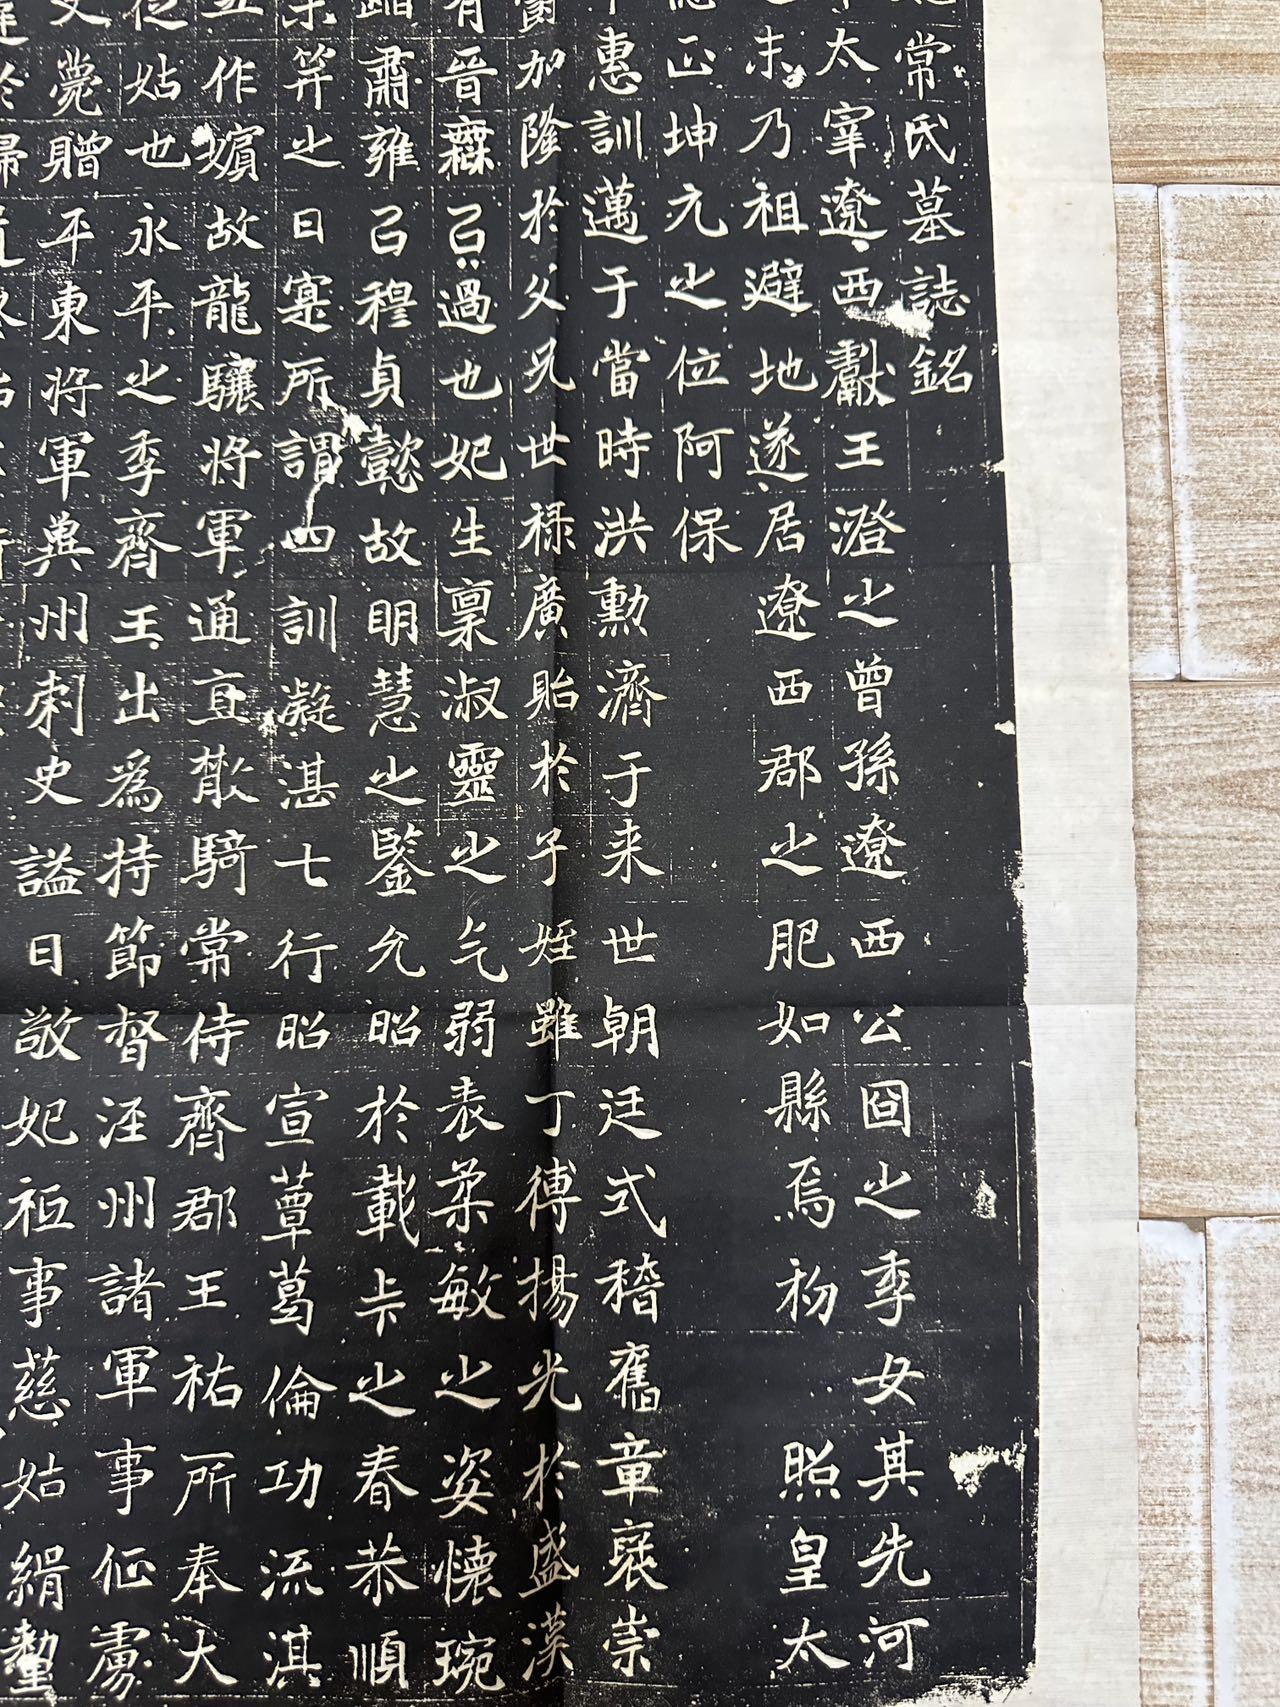 常氏墓誌銘
太宰遼西獻王澄之曾孫遼西公囧之季女其先河
末乃祖避地遂居遼西郡之肥如縣焉初 照皇太
正坤元之位阿保
惠訓邁于當時洪勲濟于来世朝廷式稽舊章褒崇
加隆於父兄世禄廣貽於子姪雖丁傅揚光於盛漢
有晉無已過也妃生稟淑靈之气弱表柔敏之姿懐琬
肅雍已穆貞懿故明慧之鑒允昭於載卡之春恭順
笄之日寔所謂四訓凝湛七行昭宣蕈葛倫功流淇
作嬪故龍驤將軍通直散騎常侍齊郡王祐所奉大
姑也永平之季齊王出為持節督涇州諸軍事征虜
薨贈平東將軍兾州刺史謚曰敬妃秪事慈姑緝